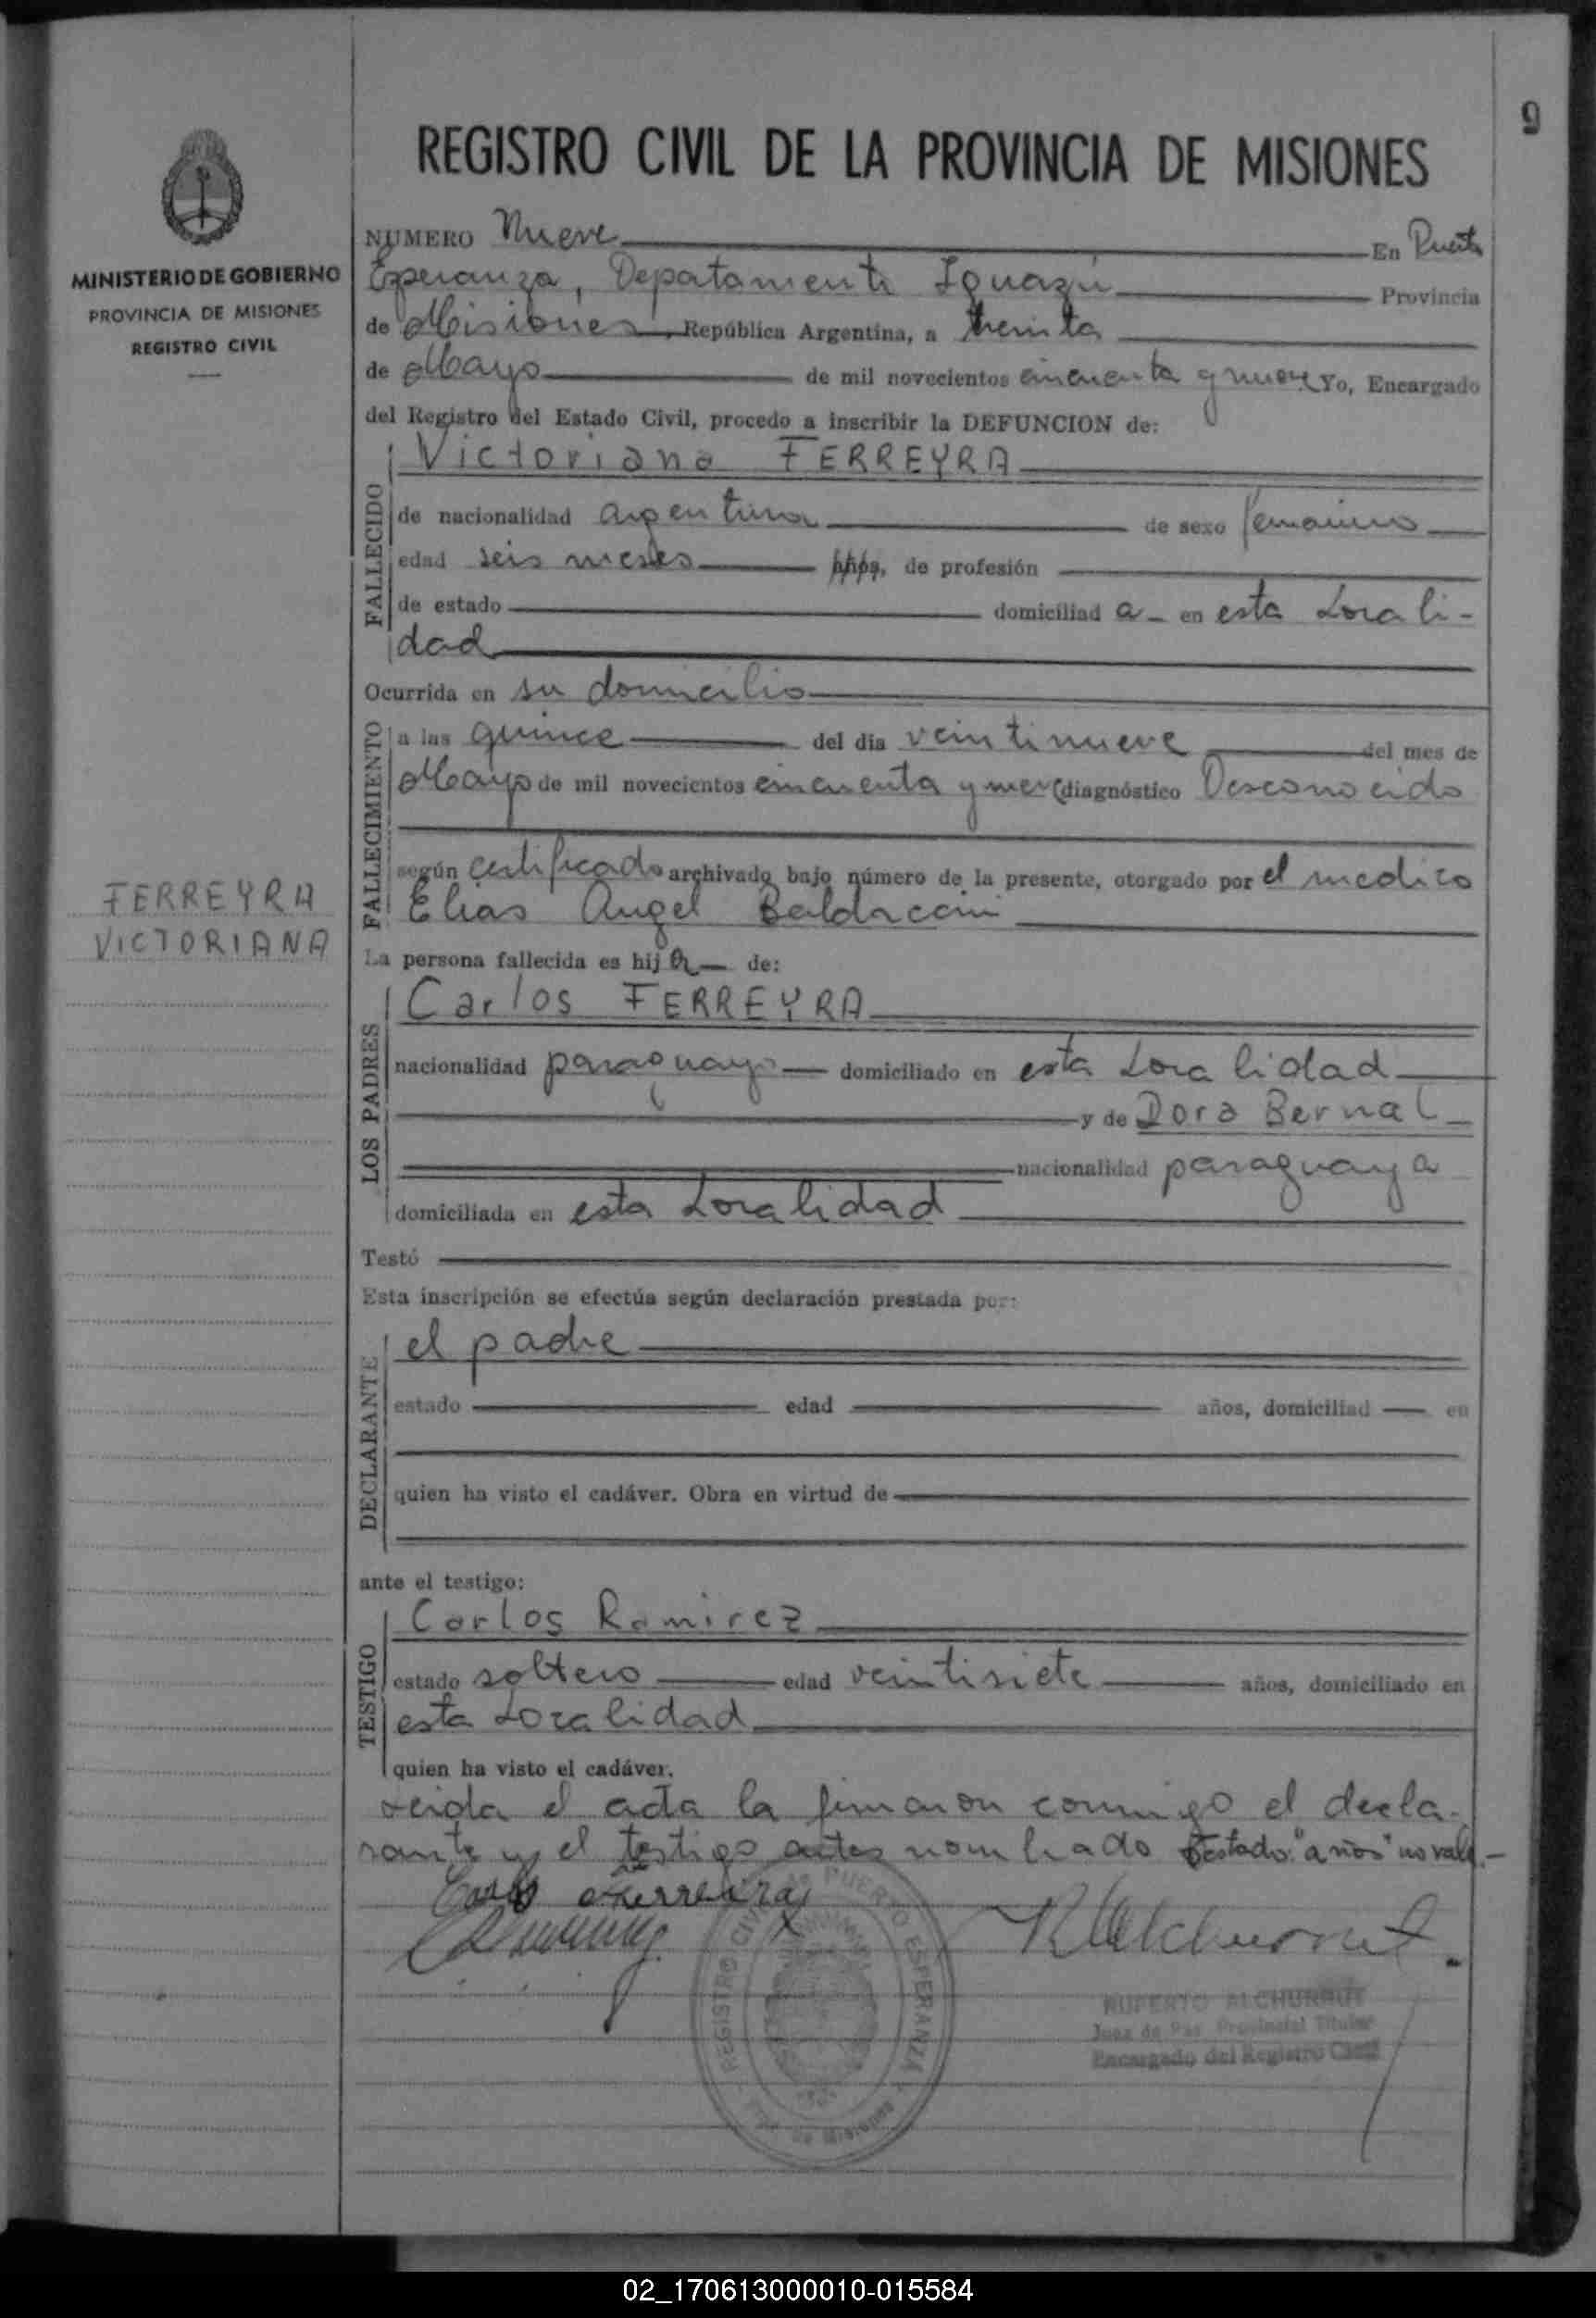 9
REGISTRO CIVIL DE LA PROVINCIA DE MISIONES
MINISTERIO DE GOBIERNO
PROVINCIA DE MISIONES
REGISTRO CIVIL
NUMERO Nueve En Puerto
Esperanza, Departamento Iguazú Provincia
de Misiones, República Argentina, a treinta
de Mayo de mil novecientos cincuenta y nueve Yo, Encargado
del Registro del Estado Civil, procedo a inscribir la DEFUNCION de:
Victoriana FERREYRA
FALLECIDO
de nacionalidad argentina de sexo femenino
edad seis meses años, de profesión
de estado domiciliad a en esta Locali-
dad
Ocurrida en su domicilio
FALLECIMIENTO
a las quince del dia veintinueve del mes de
Mayo de mil novecientos cincuenta y nueve diagnóstico Desconocido
según certificado archivado bajo número de la presente, otorgado por el medico
Elias Angel Baldaccini
FERREYRA
VICTORIANA
La persona fallecida es hij a de:
LOS PADRES
Carlos FERREYRA
nacionalidad paraguayo domiciliado en esta Localidad
y de Dora Bernal
nacionalidad paraguaya
domiciliada en esta Localidad
Testó
Esta inscripción se efectúa según declaración prestada por:
DECLARANTE
el padre
estado edad años, domiciliad en
quien ha visto el cadáver. Obra en virtud de
ante el testigo:
TESTIGO
Carlos Ramirez
estado soltero edad veintisiete años, domiciliado en
esta Localidad
quien ha visto el cadáver.
Leida el acta la firmaron conmigo el decla-
rante y el testigo antes nombrado Testado: "años" no vale.-
Carlos Ferreira
REGISTRO CIVIL DE PUERTO ESPERANZA
de Misiones
RUPERTO ALCHURRUT
Juez de Paz Provincial Titular
Encargado del Registro Civil
02_170613000010-015584